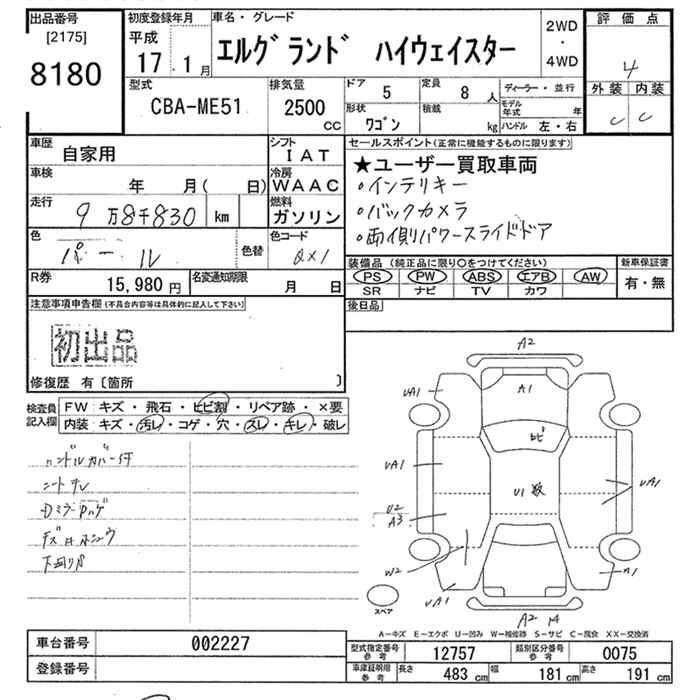 出品番号 [2175] 8180
初度登録年月 平成 17 . 1 月
車名・グレード エルグランド ハイウェイスター
2WD ・ 4WD
評価点 4
型式 CBA-ME51
排気量 2500 CC
ドア 5
定員 8 人
ディーラー・並行
形状 ワゴン
積載 kg
モデル年式 年
ハンドル 左・右
外装 C 内装 C
車歴 自家用
シフト IAT
セールスポイント(正常に機能するものに限ります)
★ユーザー買取車両
車検 年 月( 日)
冷房 WAAC
・インテリキー
走行 9万8千830 km
燃料 ガソリン
・バックカメラ
・両側パワースライドドア
色 パール
色替
色コード QX1
装備品(純正品に限り○をつけてください)
新車保証書
PS PW ABS エアB AW
有・無
SR ナビ TV カワ
R券 15,980 円
名変通知期限 月 日
後日品
注意事項申告欄(不具合内容等は具体的に記入して下さい)
初出品
修復歴 有〔箇所 〕
検査員記入欄
FW: キズ・飛石・ヒビ割・リペア跡・×要
内装: キズ・汚レ・コゲ・穴・ズレ・キレ・破レ
ハンドルカバー付
シートサレ
下回りサビ
A2
UA1
A1
ヒビ
UA1
U1 数
UA1
U2
A3
W2
UA1
A1
A2
スペア
A−キズ E−エクボ U−凹み W−補修跡 S−サビ C−腐食 XX−交換済
車台番号 002227
型式指定番号 参考 12757
類別区分番号 参考 0075
登録番号
車庫証明用 参考 長さ 483 cm 幅 181 cm 高さ 191 cm